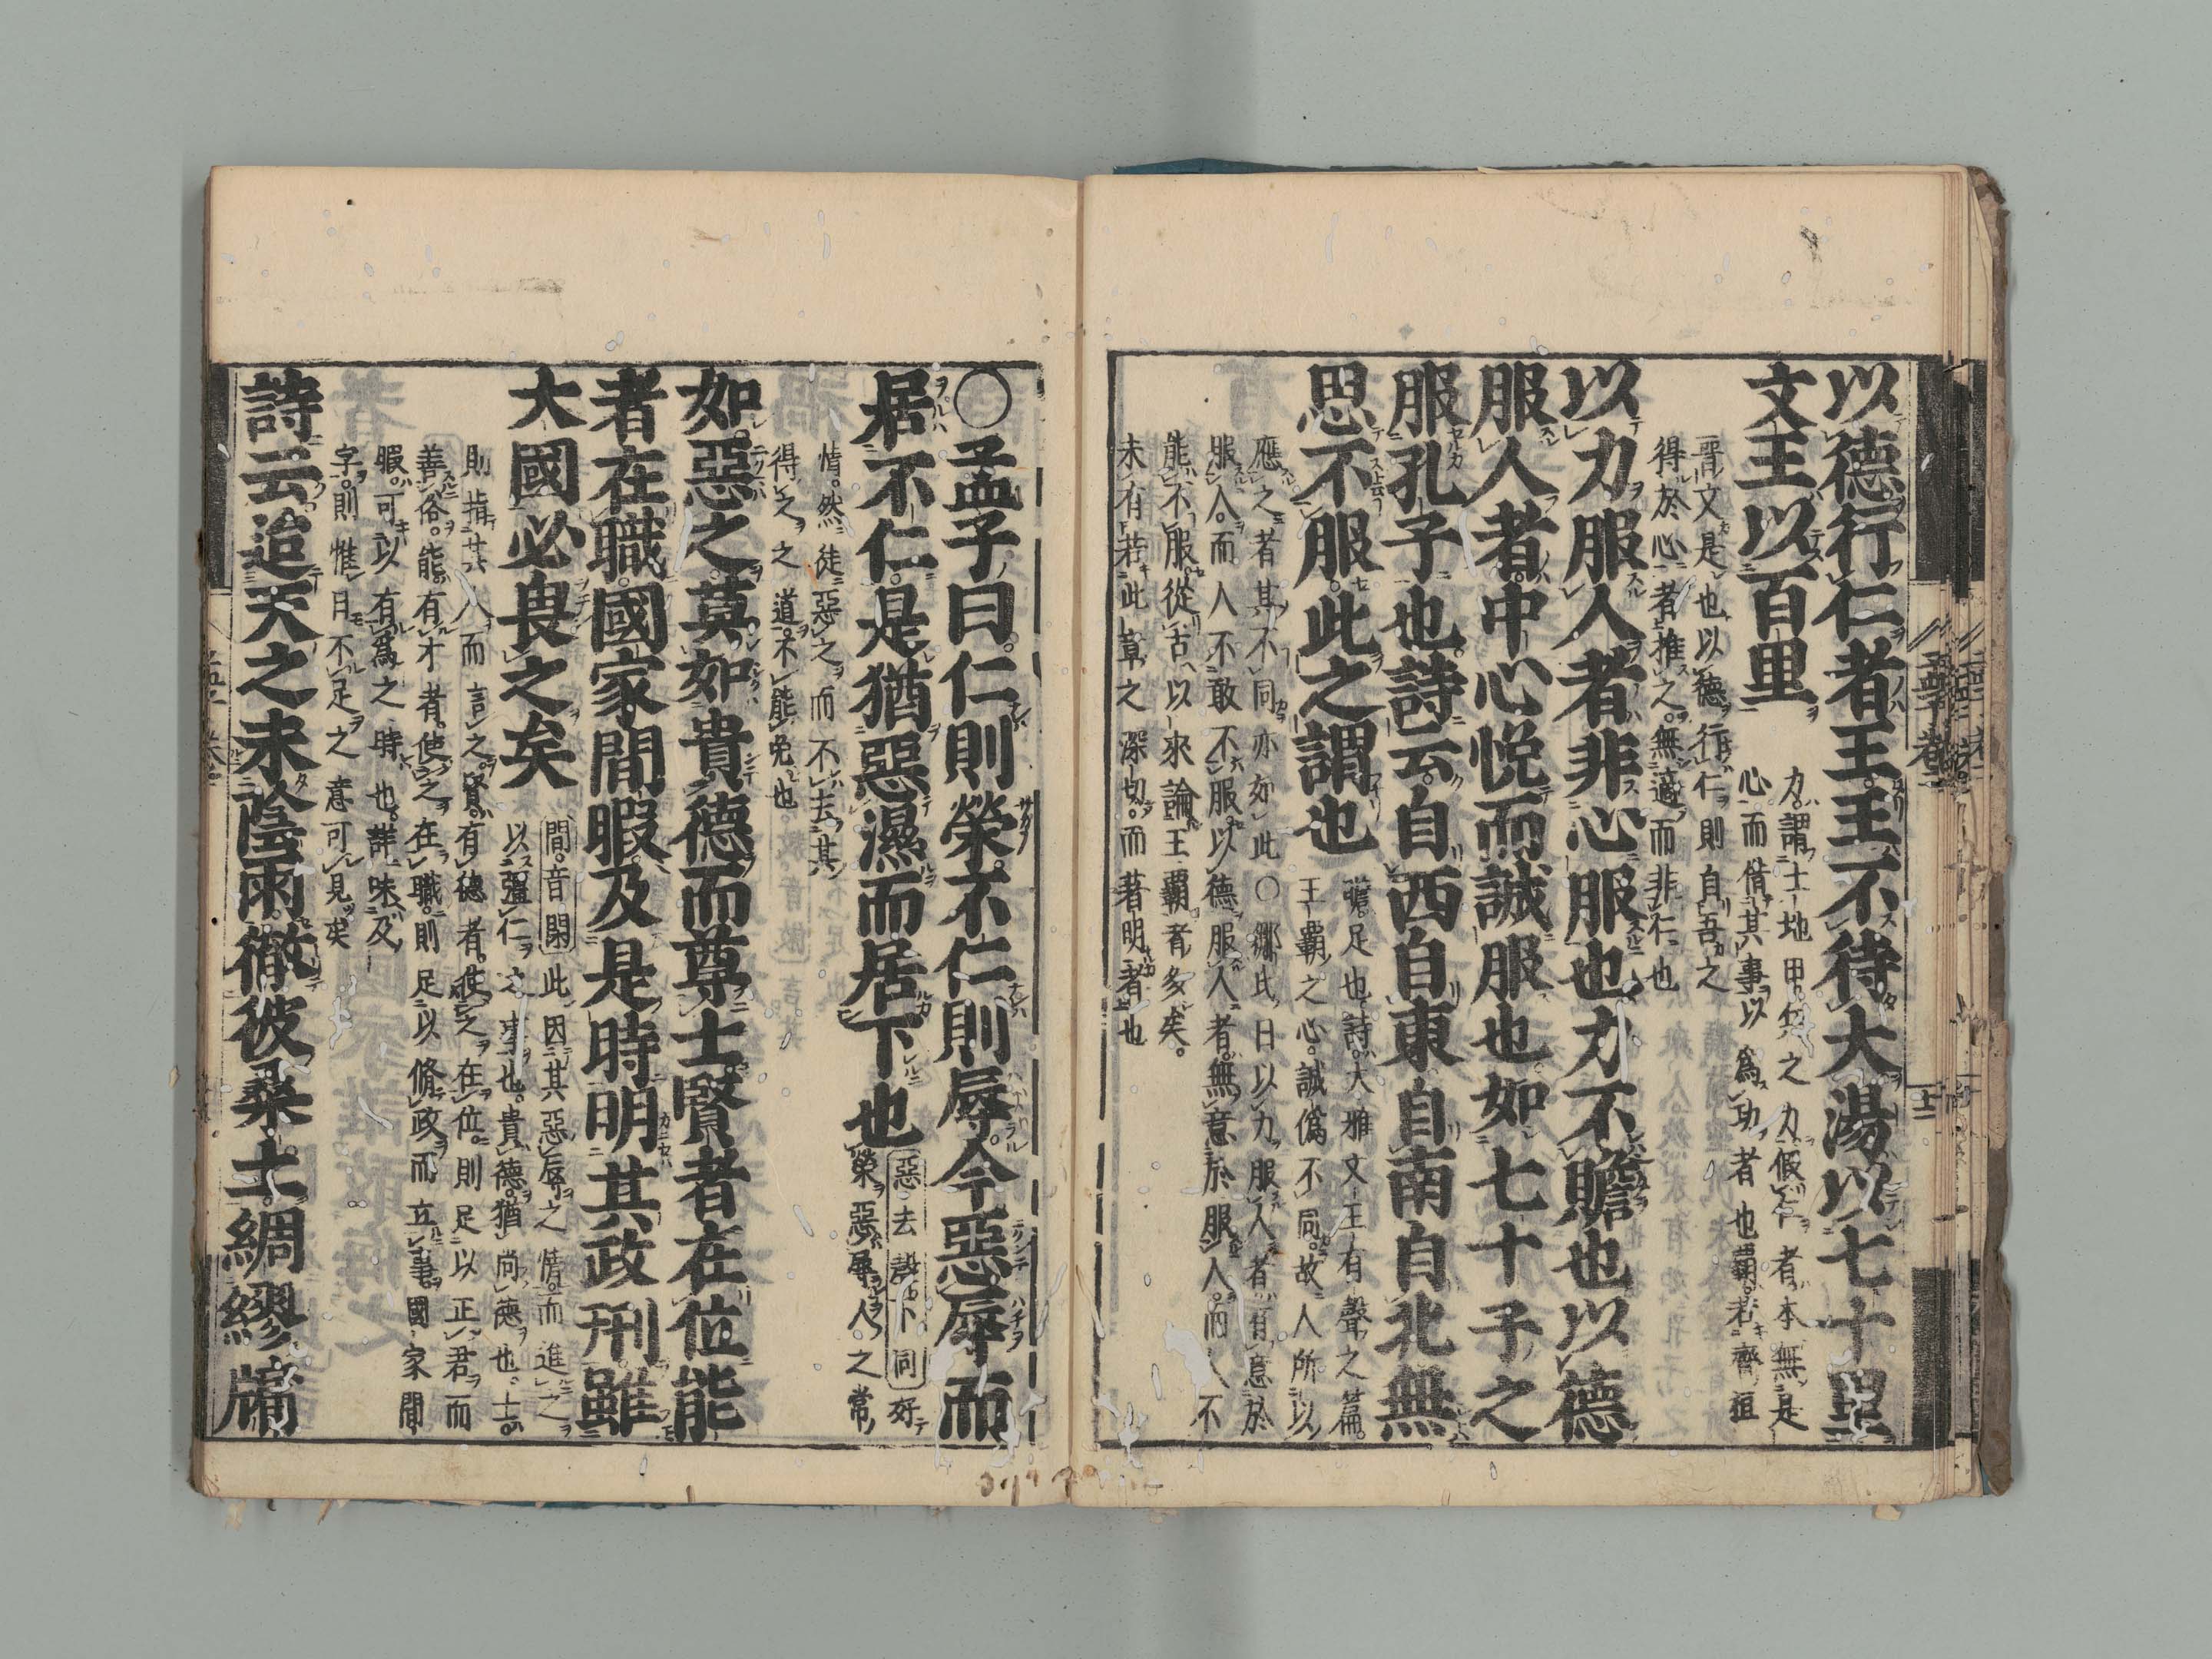 以德行仁者王王不待大湯以七十里
文王以百里
力謂土地甲兵之力假仁者本無是
心而借其事以爲功者也霸若齊桓
晉文是也以德行仁則自吾之
得於心者推之無適而非仁也
以力服人者非心服也力不贍也以德
服人者中心悦而誠服也如七十子之
服孔子也詩云自西自東自南自北無
思不服此之謂也
贍足也詩大雅文王有聲之篇
王霸之心誠僞不同故人所以
應之者其不同亦如此○鄒氏曰以力服人者有意於
服人而人不敢不服以德服人者無意於服人而人不
能不服從古以來論王霸者多矣
未有若此章之深切而著明者也
○孟子曰仁則榮不仁則辱今惡辱而
居不仁是猶惡濕而居下也
惡去聲下同好
榮惡辱人之常
情然徒惡之而不去其
得之之道不能免也
如惡之莫如貴德而尊士賢者在位能
者在職國家間暇及是時明其政刑雖
大國必畏之矣
間音閑此因其惡辱之情而進之
以彊仁之事也貴德猶尚德也士
則指其人而言之賢有德者使之在位則足以正君而
善俗能有才者使之在職則足以脩政而立事國家間
暇可以有爲之時也詳味及
字則惟日不足之意可見矣
詩云迨天之未陰雨徹彼桑土綢繆牖